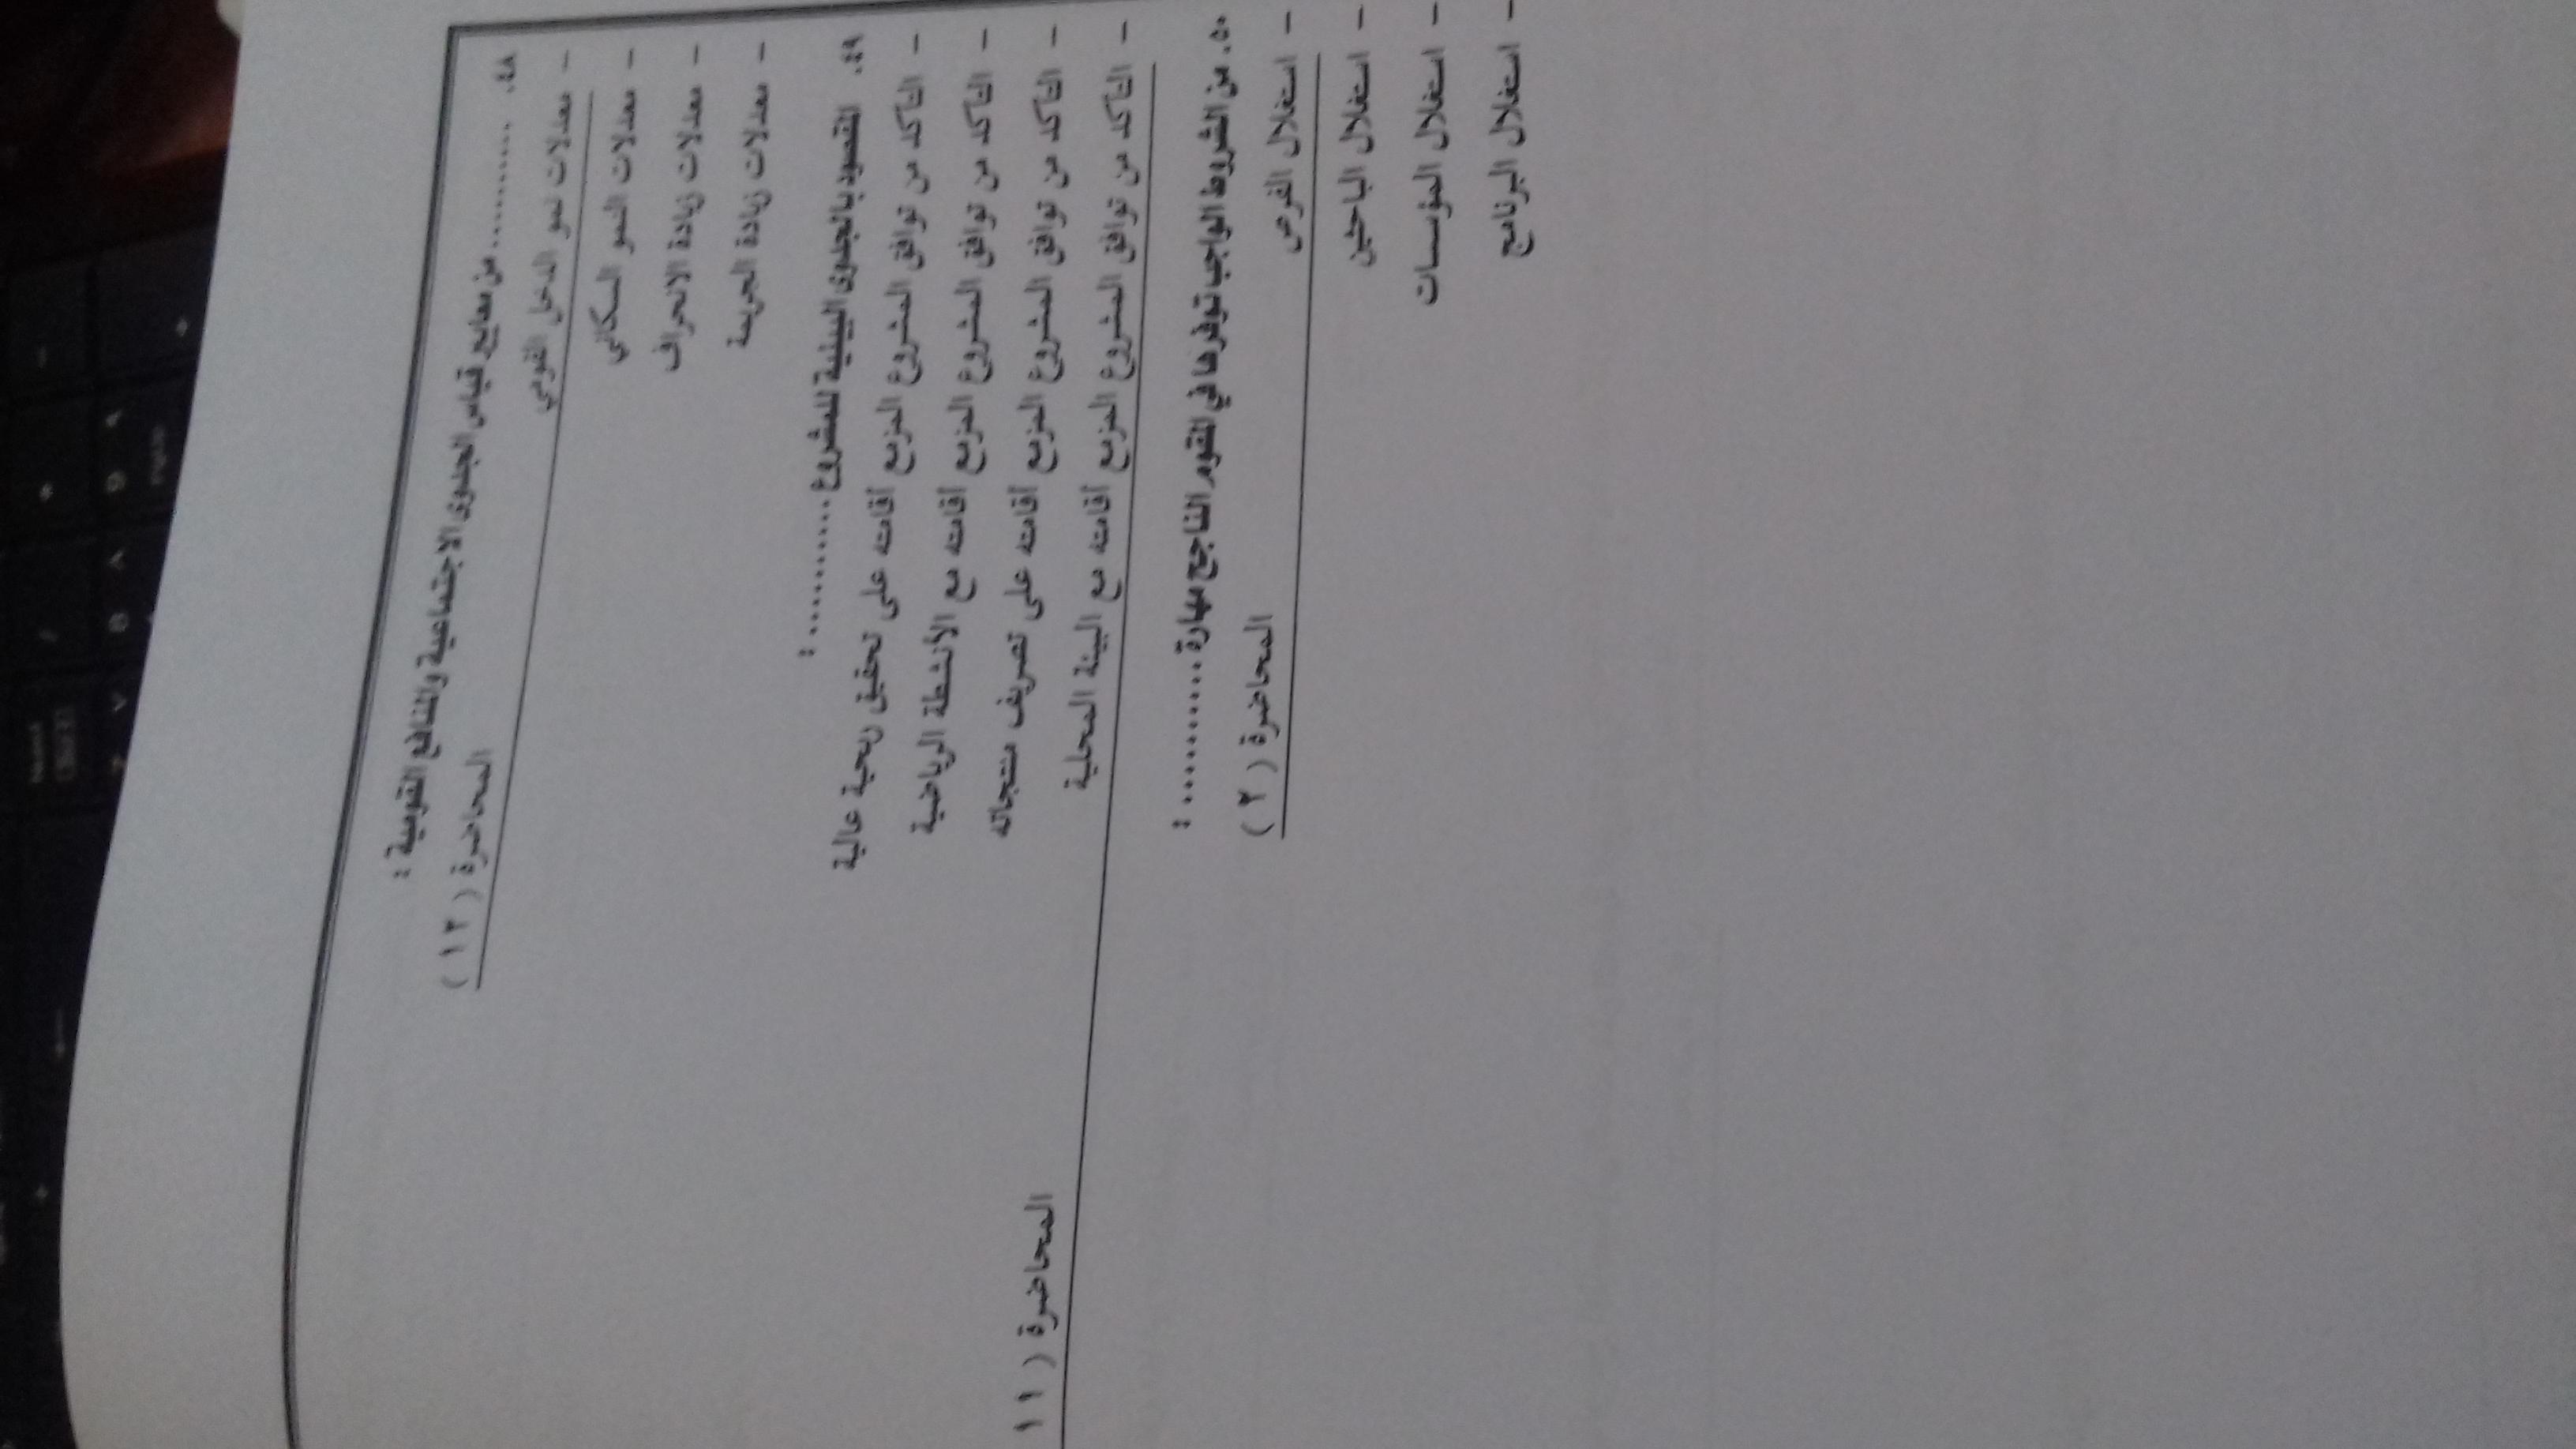 ٤٨. ............ من معايير قياس الجدوى الاجتماعية والمنافع القومية :
– معدلات نمو الدخل القومي المحاضرة ( ١٢ )
– معدلات النمو السكاني
– معدلات زيادة الانحراف
– معدلات زيادة الجريمة
٤٩. التقييم بالجدوى البيئية للمشروع ............ :
– التأكد من توافق المشروع المزمع إقامته على تحقيق ربحية عالية
– التأكد من توافق المشروع المزمع إقامته مع الأنشطة الرياضية
– التأكد من توافق المشروع المزمع إقامته على تصريف منتجاته
– التأكد من توافق المشروع المزمع إقامته مع البيئة المحيطة المحاضرة ( ١١
٥٠. من الشروط الواجب توفرها في التقييم الناجح مهارة ............ :
– استغلال الفرص المحاضرة ( ٢ )
– استغلال الباحثين
– استغلال المؤسسات
– استغلال البرنامج